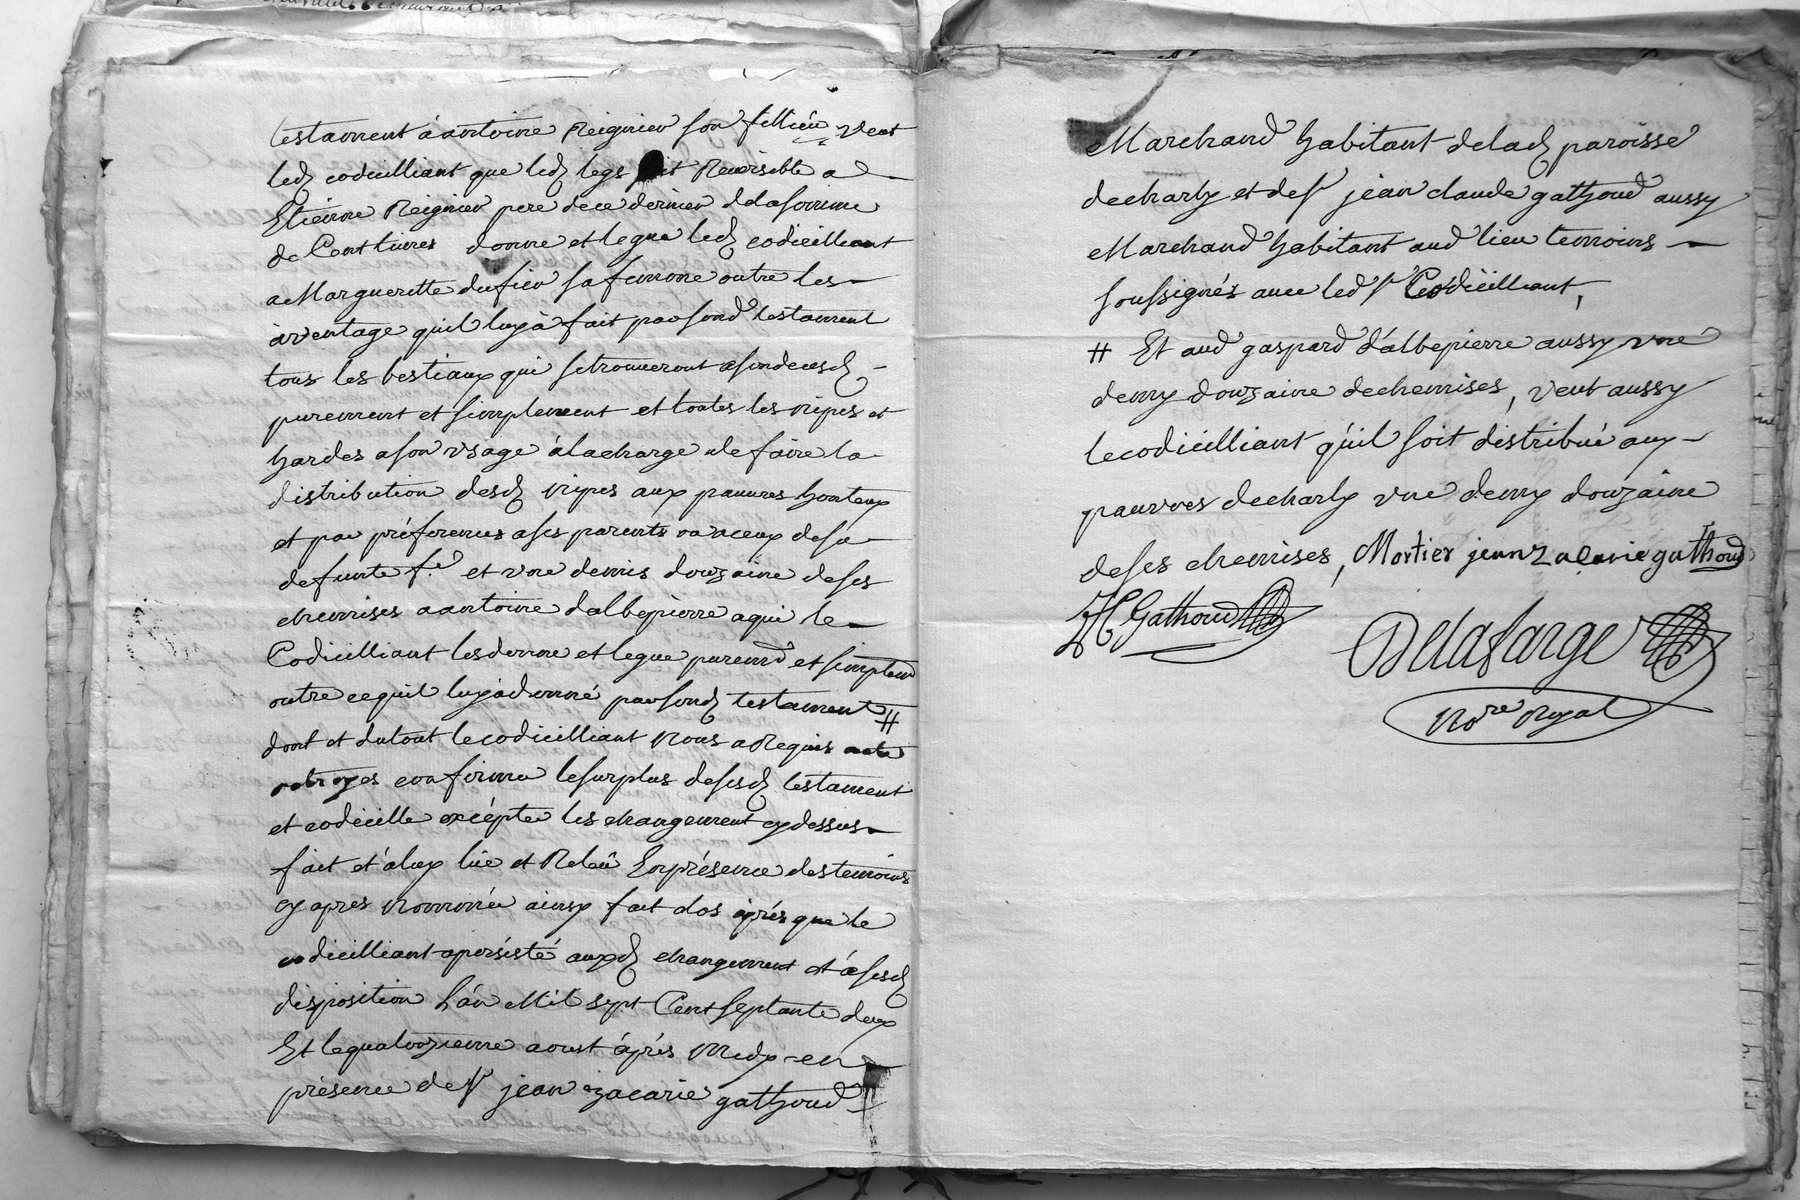 testament à antoine Reignier son fillieu veut
led codicilliant que led legs soit Reversible a
Etienne Reignier pere de ce dernier de la somme
de Cent livres donne et legue led codicilliant
a Margueritte dufieu sa femme outre les
aventage quil luy à fait par sond testament
tous les bestiaux qui se trouveront a son deced
purement et simplement et toutes les nipes et
hardes a son usage à la charge de faire la
distribution desd nipes aux pauvres honteux
et par préférences a ses parents ou a ceux de sa
defunte f.e et une demis douzaine de ses
chemises a antoine dalbepierre a qui le
Codicilliant les donne et legue puremt et simplemt
outre ce quil luy à donné par sond testament #
dont et du tout le codicilliant Nous a Requis acte
octroyés confirme le surplus de sesd testament
et codicille excépter les changement cy dessus
fait et à luy lüe et Releü En présence des temoins
cy apres Nommée ainsy fait clos àprés que le
codicilliant a persisté auxd changement et à sesd
disposition L'àn Mil sept Cent septante deux
Et le quatorzieme aoust àprés Midy en
présence de sr jean zacarie gathoud
Marchand habitant de lad paroisse
de charly et de sr jean claude gathoud aussy
Marchand habitant aud lieu temoins
soussignés avec led sr Codicilliant,
# Et aud gaspard d'albepierre aussy une
demy douzaine de chemises, veut aussy
le codicilliant qüil soit distribué aux
pauvres de charly une demy douzaine
de ses chemises, Mortier jean zacarie gathoud
JC Gathoud
Delafarge
Nore Royal